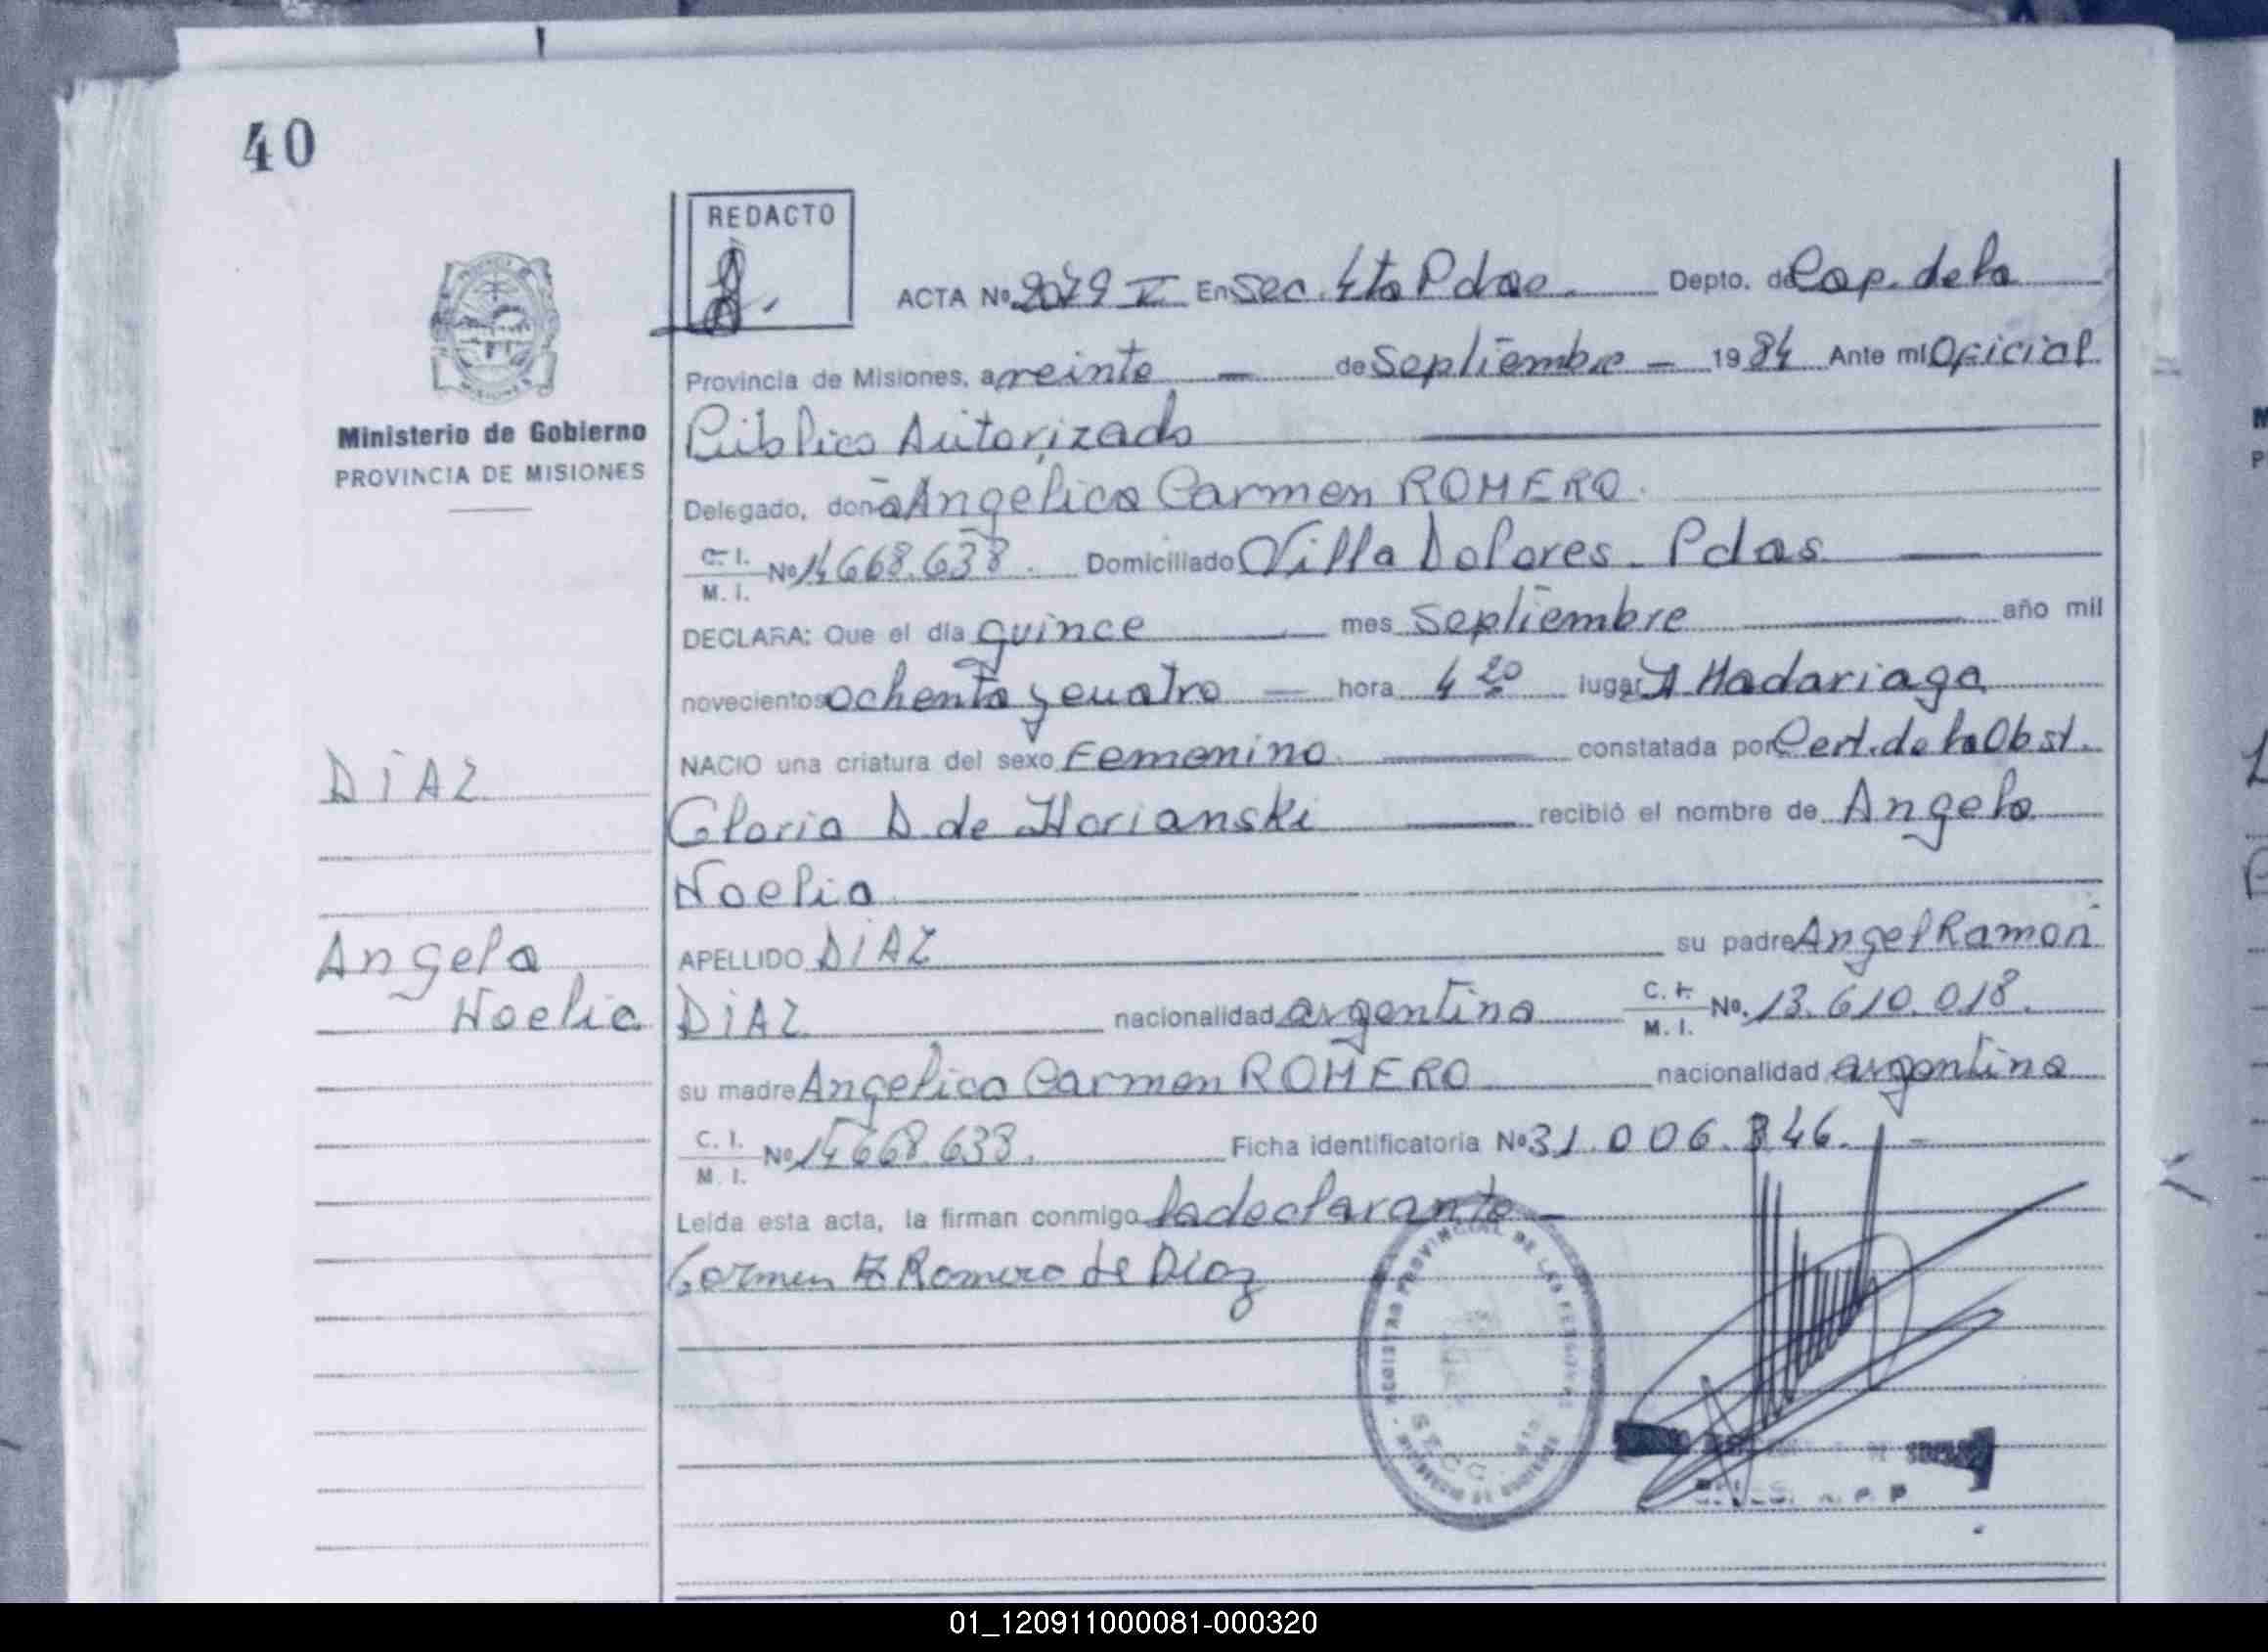 40
REDACTO
ACTA Nº 2079 V En Sec. 4ta Pdas. Depto. de Cap. de la
Provincia de Misiones, a veinte — de Septiembre — 1984 Ante mí Oficial
Ministerio de Gobierno
PROVINCIA DE MISIONES
Público Autorizado
Delegado, doña Angelica Carmen ROMERO.
C. I.
M. I. Nº 14668.638. Domiciliado Villa Dolores. Pdas
DECLARA: Que el día quince mes septiembre año mil
novecientos ochenta y cuatro — hora 4 20 lugar H Madariaga
NACIO una criatura del sexo Femenino. constatada por Cert. de la Obst.
Gloria D. de Horianski recibió el nombre de Angela
Noelia
DIAZ
Angela
Noelia
APELLIDO DIAZ su padre Angel Ramon
DIAZ nacionalidad argentina C. I.
M. I. No. 13.610.018.
su madre Angelica Carmen ROMERO nacionalidad argentina
C. I.
M. I. Nº 14668.638. Ficha identificatoria Nº 31.006.346. –
Leída esta acta, la firman conmigo la declarante —
Carmen A Romero de Diaz
REGISTRO PROVINCIAL DE LAS PERSONAS
01_120911000081-000320